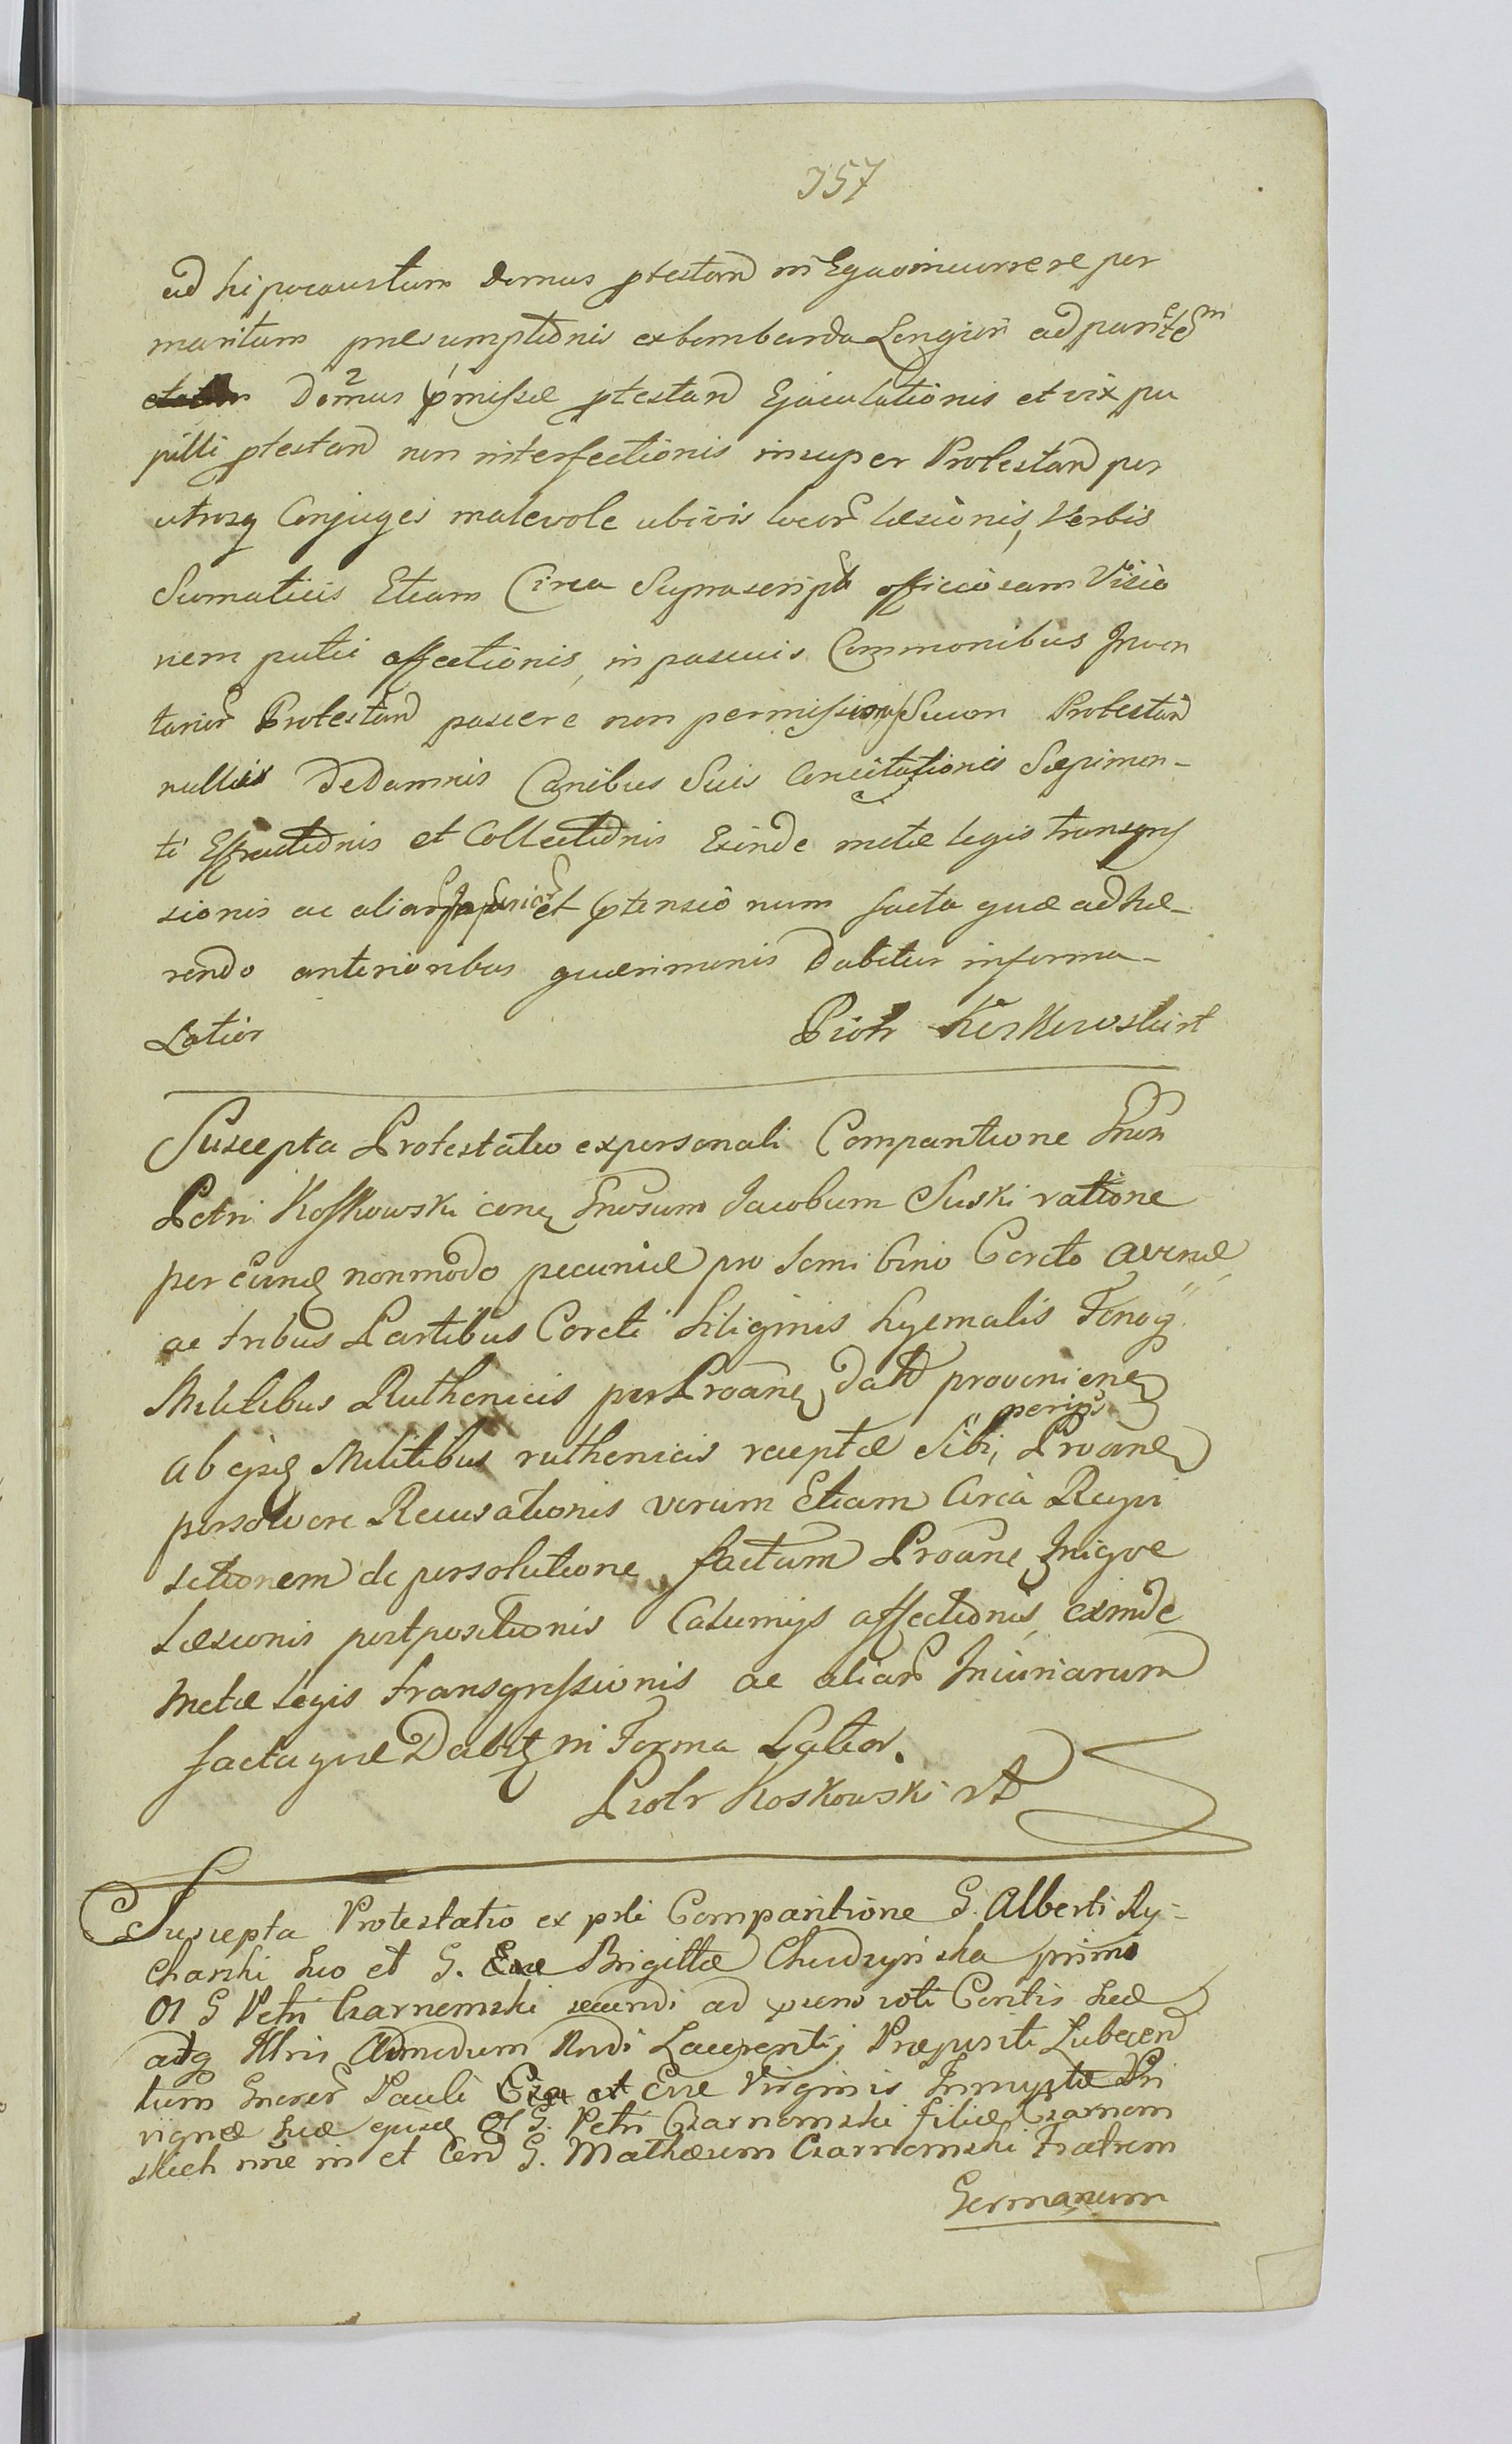 357
ad hipocaustum domus ptestand in Equo incurrere per
maritum præsumptionis ex bombarda Longiori ad parietem
Domus pmissæ ptestand Ejaculationis et vix pu
pilli ptestand non interfectionis insuper Protestand per
utrosq Conjuges malevole ubivis locor læsionis, Verbis
Sumaticis Etiam Circa Suprascript officiosam Visio
nem putei affectionis, in pascuis Commonibus Inven
tarior Protestand pascere non permissionis Suon Protestand
nullius Dedamnis Canibus Suis Concitationis Sepimen-
ti Effractionis et Collectionis Exinde metæ legis transgres
sionis ac aliar Injurior et ptensionum facta quæ adhæ-
rendo anterioribus quærimoniis Dabitur informa-
Latior Piotr Koskowski rt
Suscepta Protestatio ex personali Comparitione Gnosi
Petri Koskowski conq Gnosum Jacobum Suski ratione
per eundq nonmodo pecuniæ pro Semi bino Coreto avenæ
ac tribus Partibus Coreti Siliginis hyemalis Fenoq
Militibus Ruthenicis per Proanq datæ provenienq
ab ijsdq Militibus ruthenicis receptæ Sibi, per ips Proanq
persolvere Recusationis verum Etiam Circa Requi
sitionem de persolutione factam Proanq Inique
Læsionis postpositionis Calumijs affectionis exinde
Metæ Legis transgressionis ac aliar Iniuriarum
facta quæ Dabitq in Forma Latior.
Piotr Koskowski rt
Suscepta Protestatio ex prli Comparitione G. Alberti Ry-
charski suo et G. Brigittæ Chudzynska primo
Ol G Petri Czarnomski secundi ad præns voti Contis suæ
adq Illris Admodum Rndi Laurentij Præpositi Lubecend
tum Gneser Pauli et Evæ Virginis Innuptæ Pri
vignæ suæ ejusd Ol G. Petri Czarnomski filiæ Czarnom
skich nne in et Con G. Mathæum Czarnomski Fratrem
Germanum